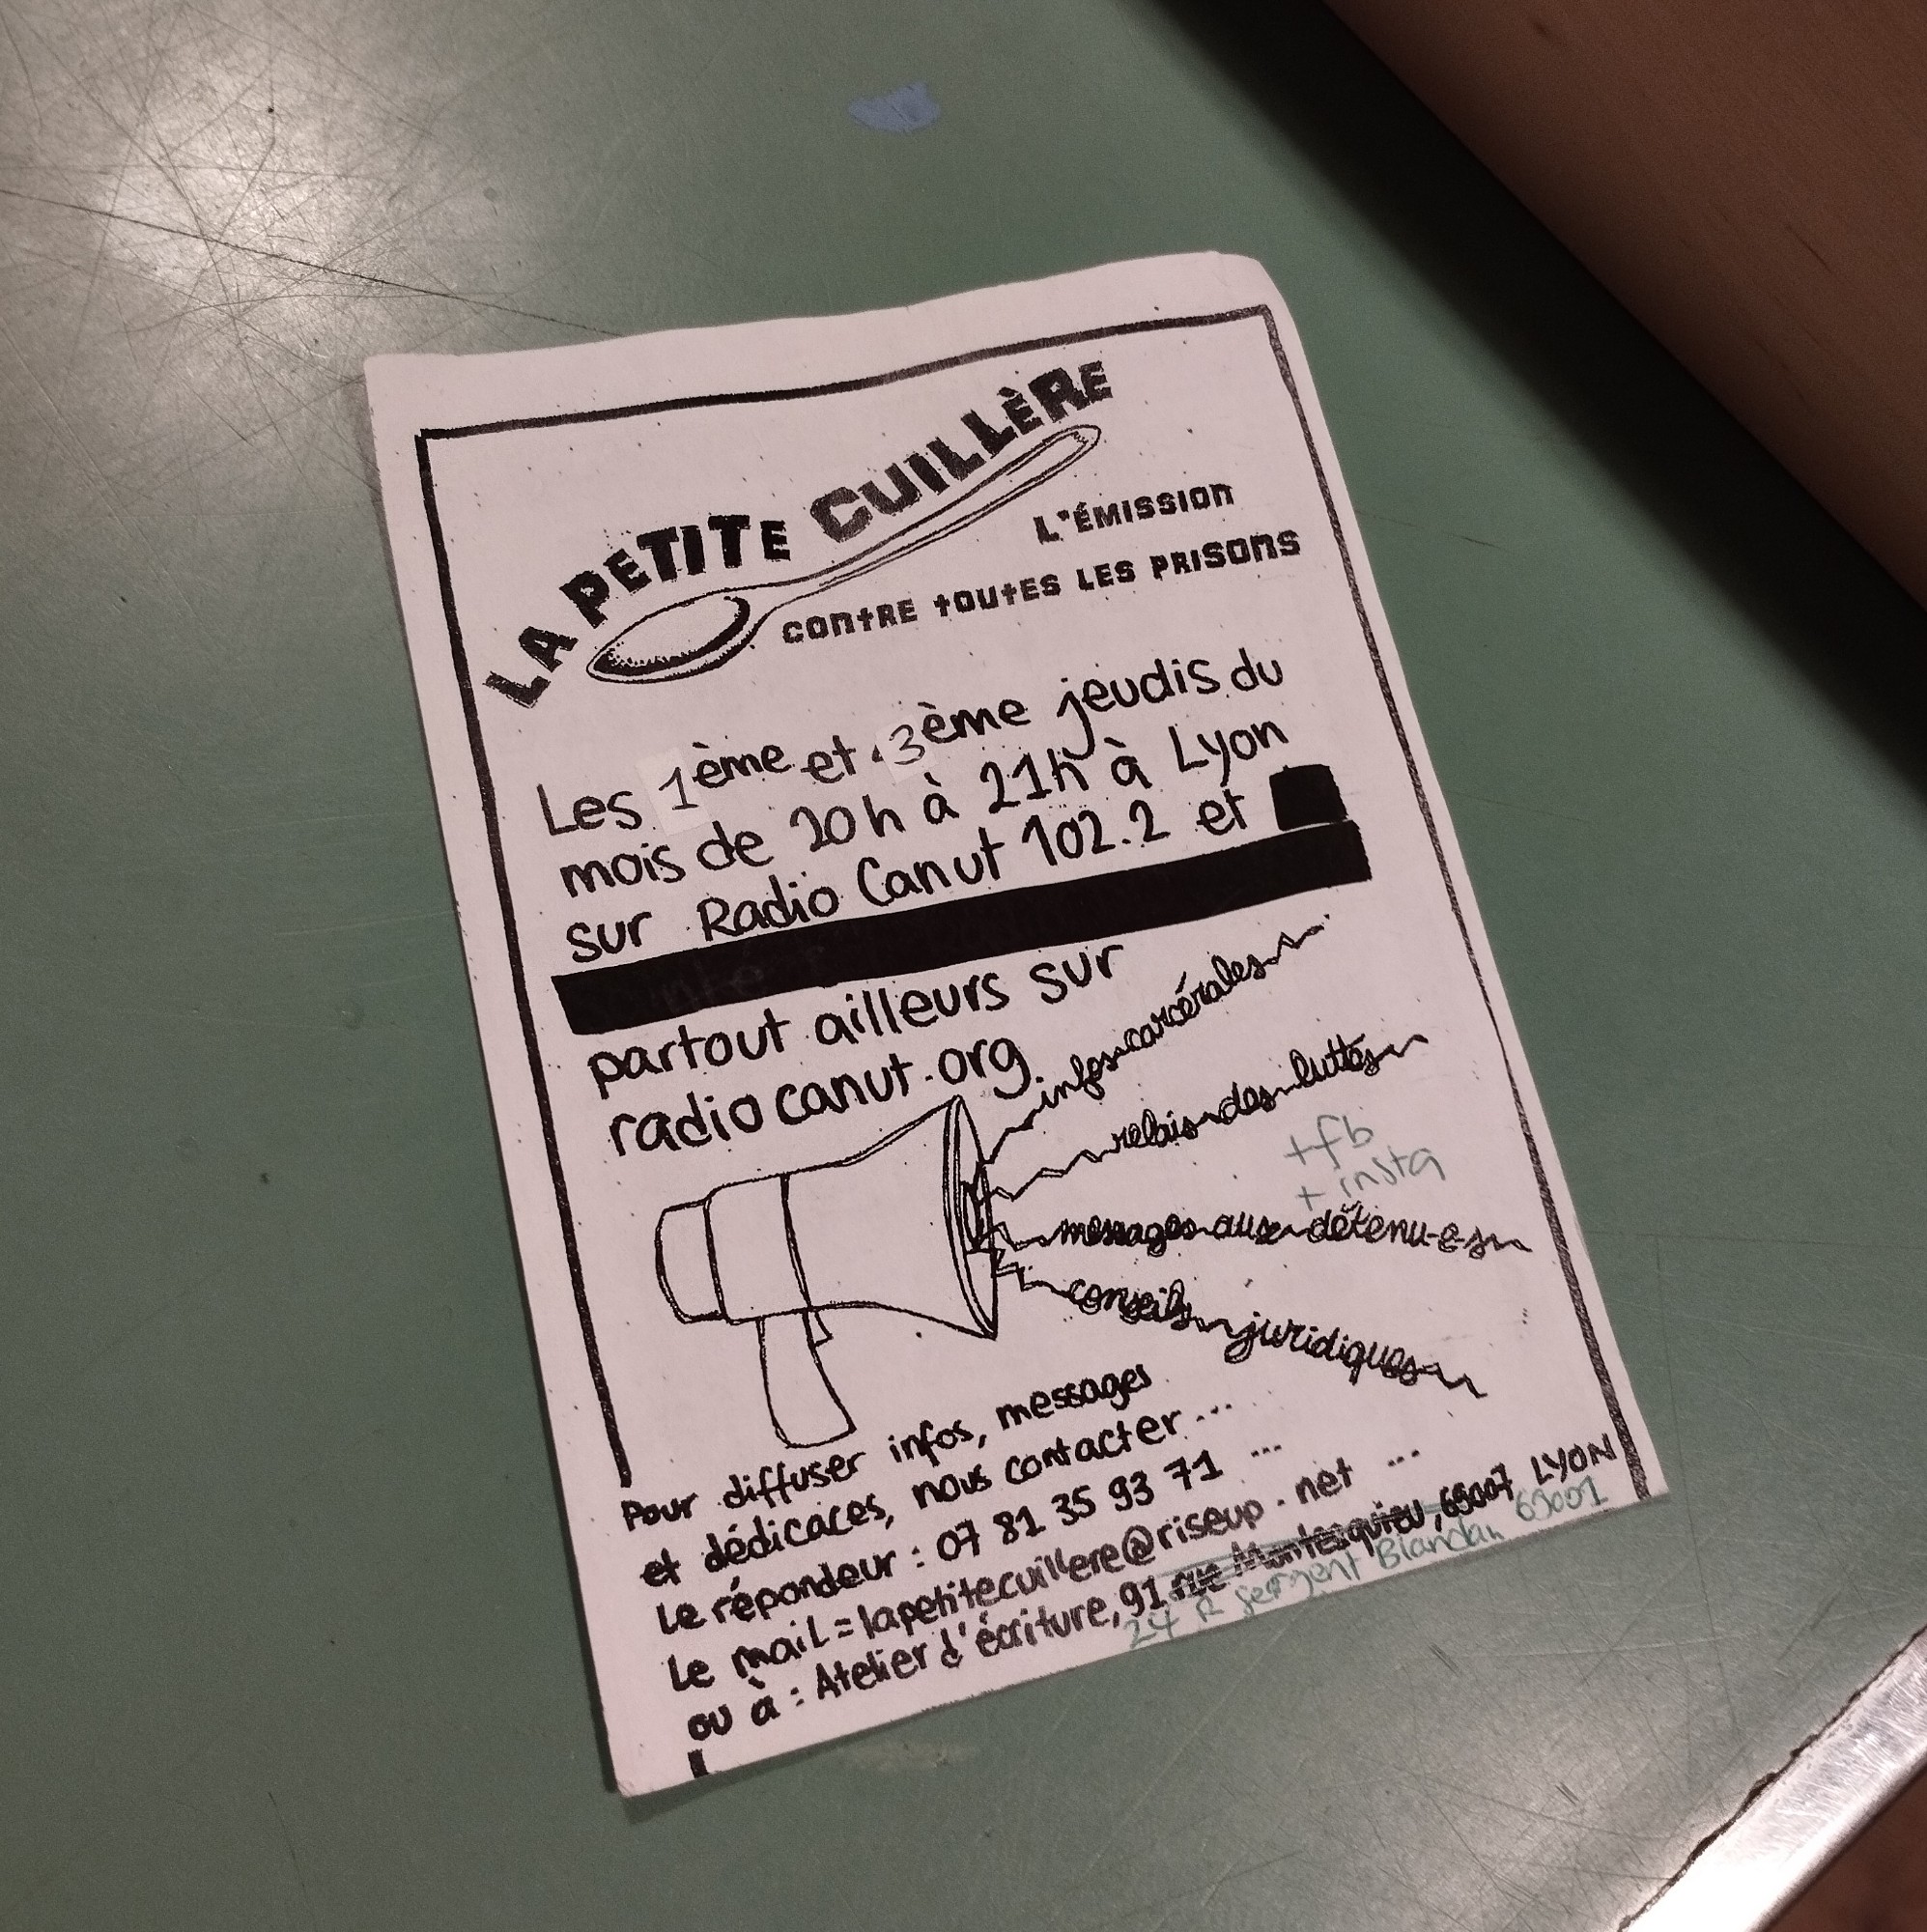 LA PETITE CUILLÈRE
L'ÉMISSION
CONTRE TOUTES LES PRISONS
Les 1ème et 3ème jeudis du
mois de 20h à 21h à Lyon
sur Radio Canut 102.2 et
partout ailleurs sur
radiocanut.org
infos carcérales
relais des luttes
+fb
+ insta
messages aux détenu-e-s
conseils juridiques
Pour diffuser infos, messages
et dédicaces, nous contacter ...
Le répondeur : 07 81 35 93 71 ...
Le mail = lapetitecuillere@riseup.net ...
ou à : Atelier d'écriture, 91 rue Montesquieu, 69007 LYON
24 R Sergent Blandan 69001